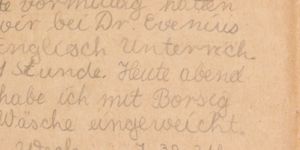 te vormittag hatten
wir bei Dr. Evenius
englisch Unterrich.
1 Stunde. Heute abend
habe ich mit Borsig
Wäsche eingeweicht.